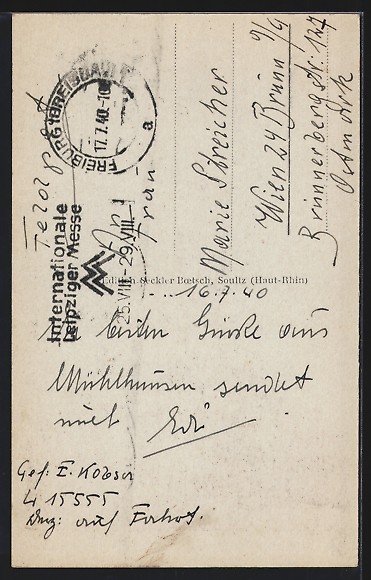 Feldpost
FREIBURG (BREISGAU)
17.7.40.-10
a
Internationale
Leipziger Messe
25.VIII.-29.VIII.
An
Frau
Marie Streicher
Wien 24 Brunn a/G
Brunnerbergstr. 127
Ostmark
Edition Seckler Bœtsch, Soultz (Haut-Rhin)
16.7.40
lieben Grüße aus
Mühlhausen sendet
mit Edi
Gef: E. Kobser
L 15555
auf